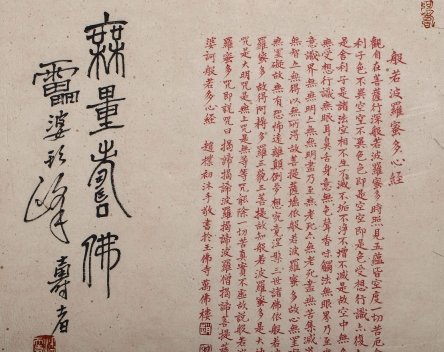 般若波羅蜜多心經
觀自在菩薩行深般若波羅蜜多時照見五蘊皆空度一切苦厄
利子色不異空空不異色色即是空空即是色受想行識亦復
是舍利子是諸法空相不生不滅不垢不淨不增不減是故空中無
無受想行識無眼耳鼻舌身意無色聲香味觸法無眼界乃至
意識界無無明亦無無明盡乃至無老死亦無老死盡無苦集滅
無智亦無得以無所得故菩提薩埵依般若波羅蜜多故心無罣
無罣礙故無有恐怖遠離顛倒夢想究竟涅槃三世諸佛依般若
羅蜜多故得阿耨多羅三藐三菩提故知般若波羅蜜多是大
咒是大明咒是無上咒是無等等咒能除一切苦真實不虛故說般若
羅蜜多咒即說咒曰揭諦揭諦波羅揭諦波羅僧揭諦菩提
婆訶般若多心經 敬書於玉佛寺萬佛樓
無量壽佛
雷婆頂峰壽者